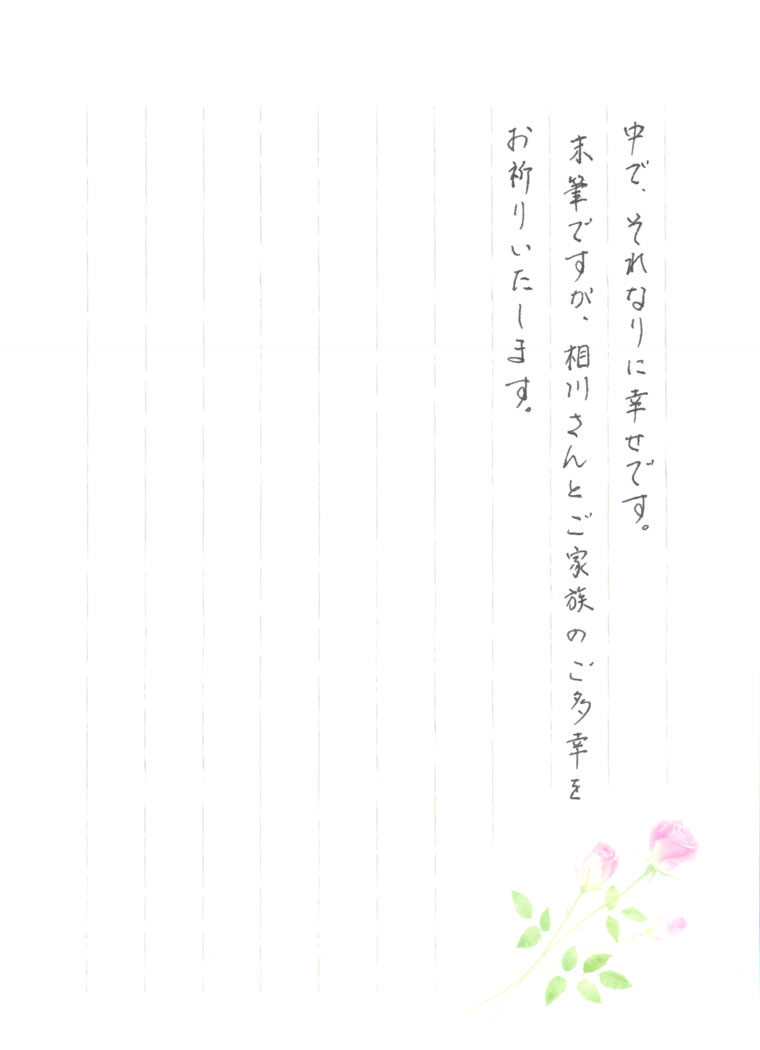 中で、それなりに幸せです。
末筆ですが、相川さんとご家族のご多幸を
お祈りいたします。